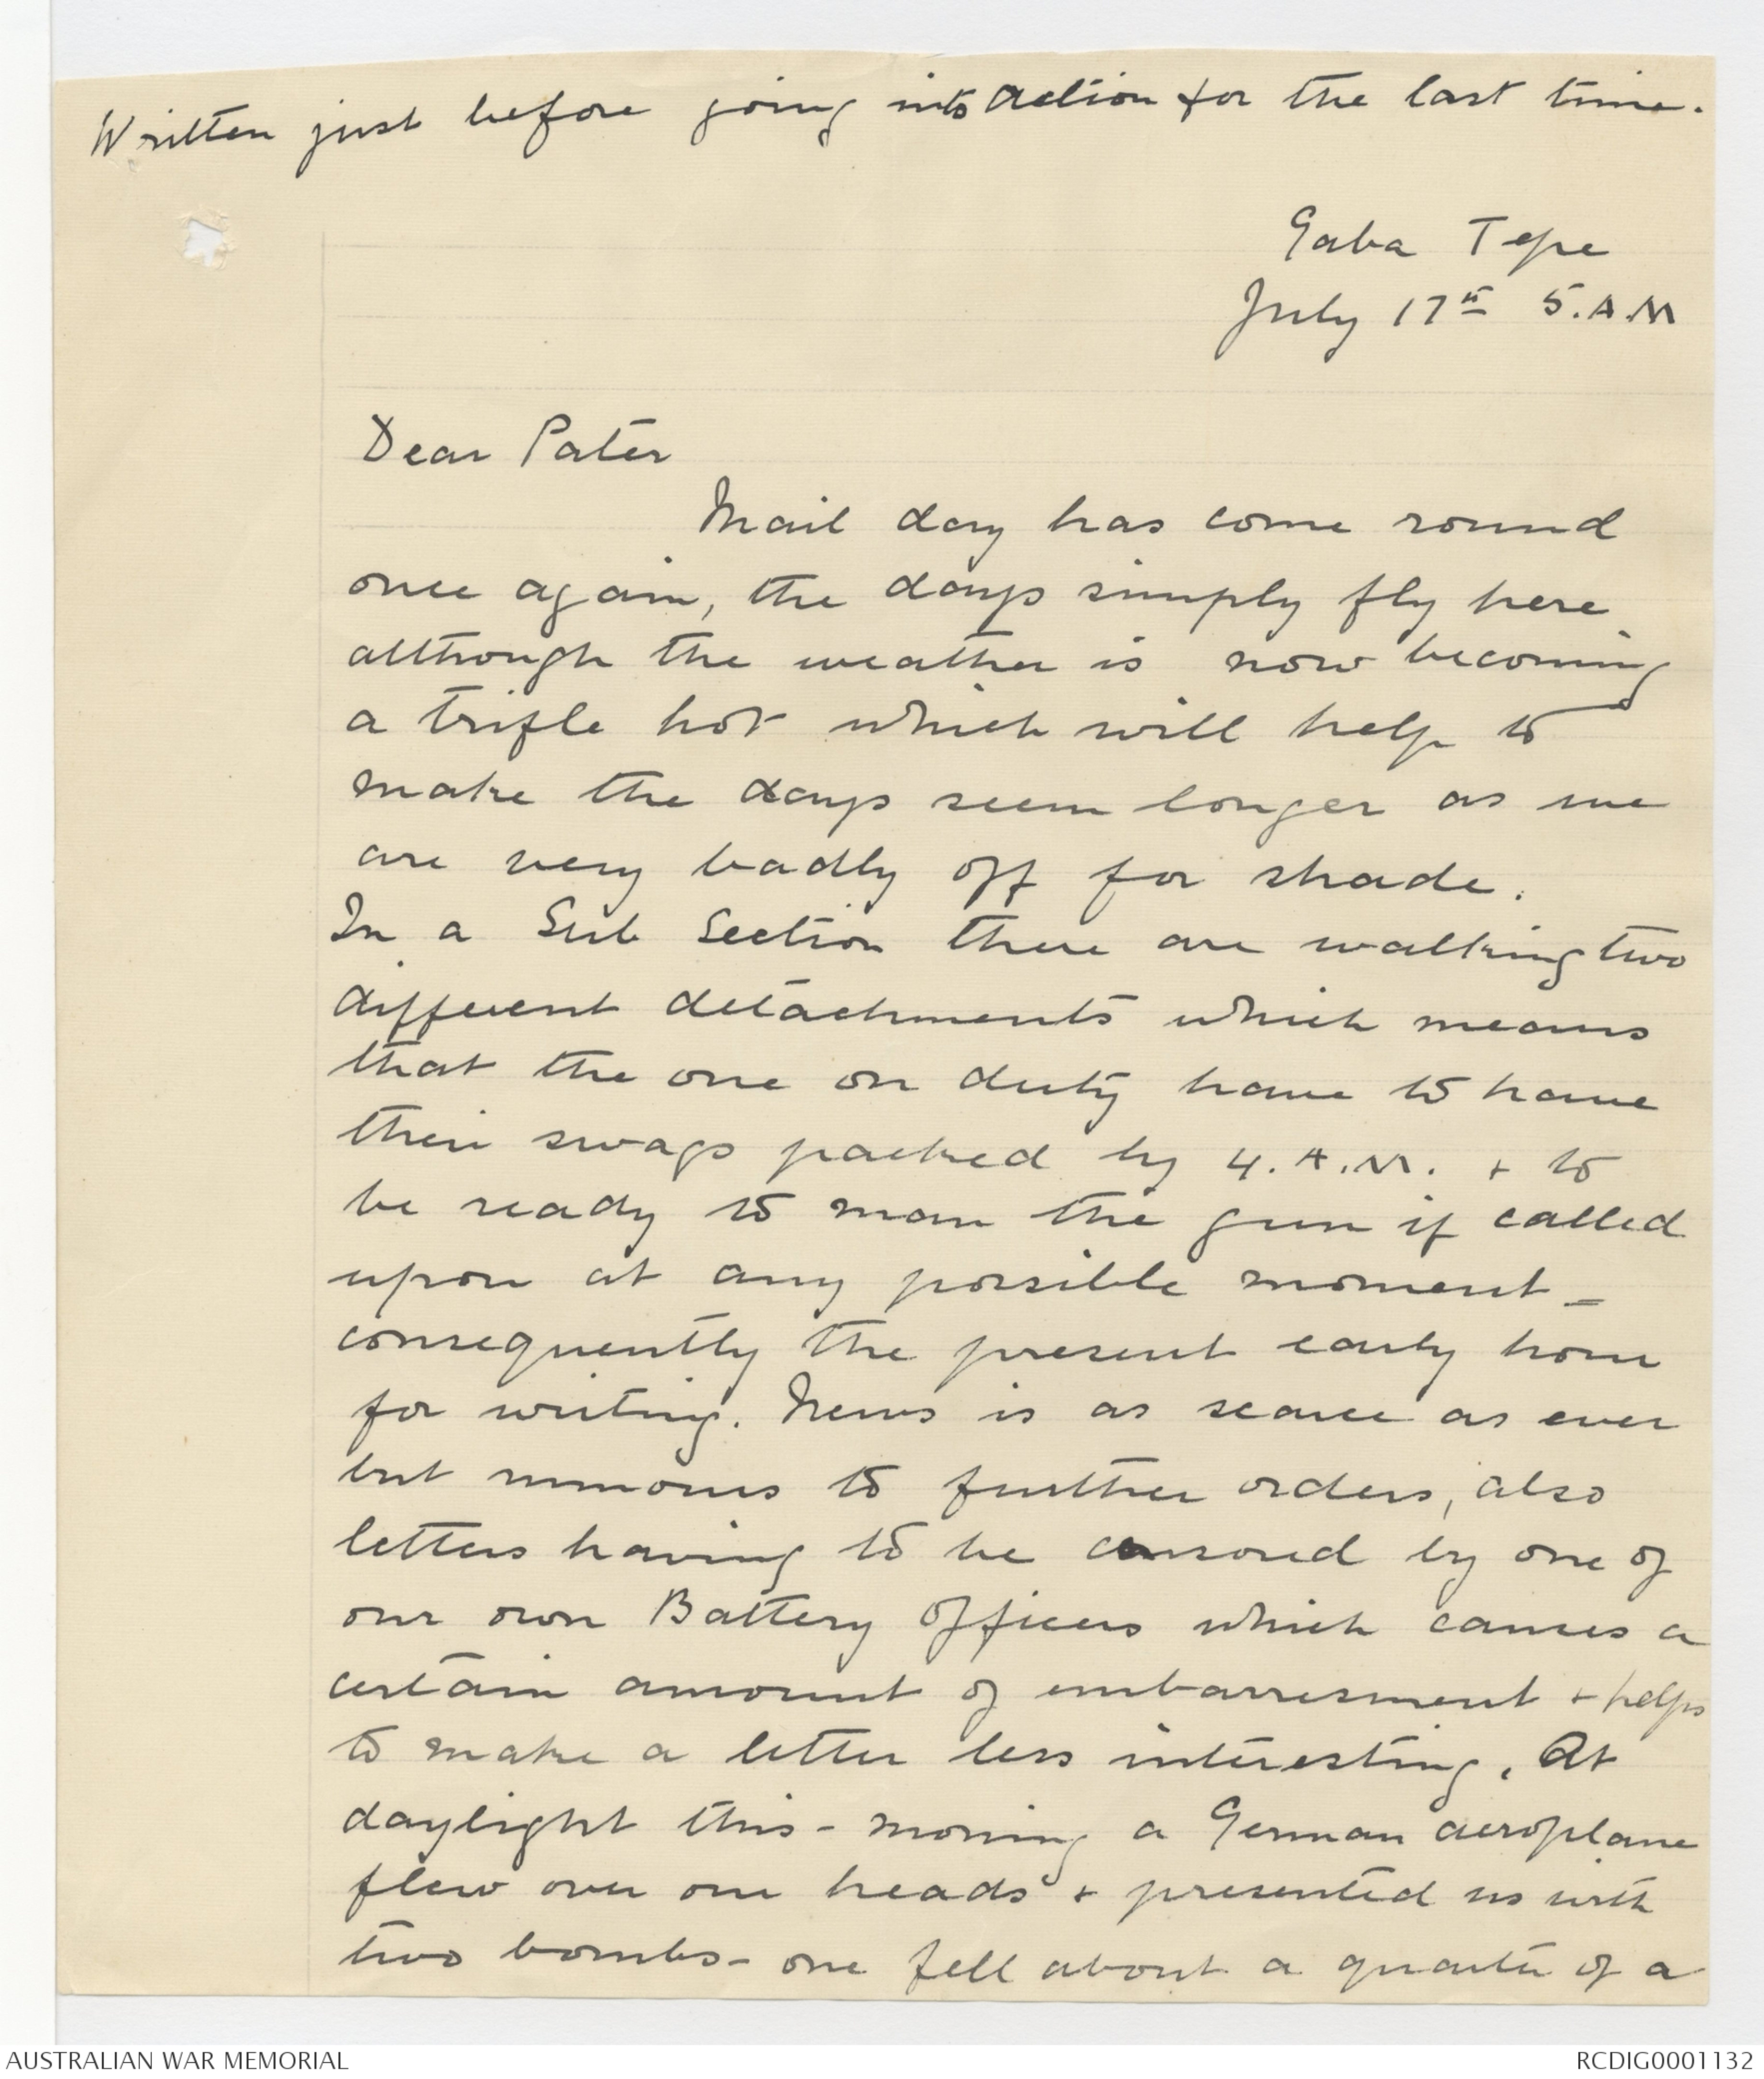 Written just before going into action for the last time.
Gaba Tepe
July 17th 5.A.M
Dear Pater
Mail day has come round
once again, the days simply fly here
although the weather is now becoming
a trifle hot which will help to
make the days seem longer as we
are very badly off for shade.
In a Sub Section there are walking two
different detachments which means
that the one on duty have to have
their swags packed by 4.A.M. + to
be ready to man the gun if called
upon at any possible moment -
consequently the present early hour
for writing. News is as scarce as ever
but rumours to further orders, also
letters having to be censored by one of
our own Battery Officers which causes a
certain amount of embarresment + helps
to make a letter less interesting. At
daylight this - morning a German aeroplane
flew over our heads + presented us with
two bombs - one fell about a quarter of a
AUSTRALIAN WAR MEMORIAL
RCDIG0001132